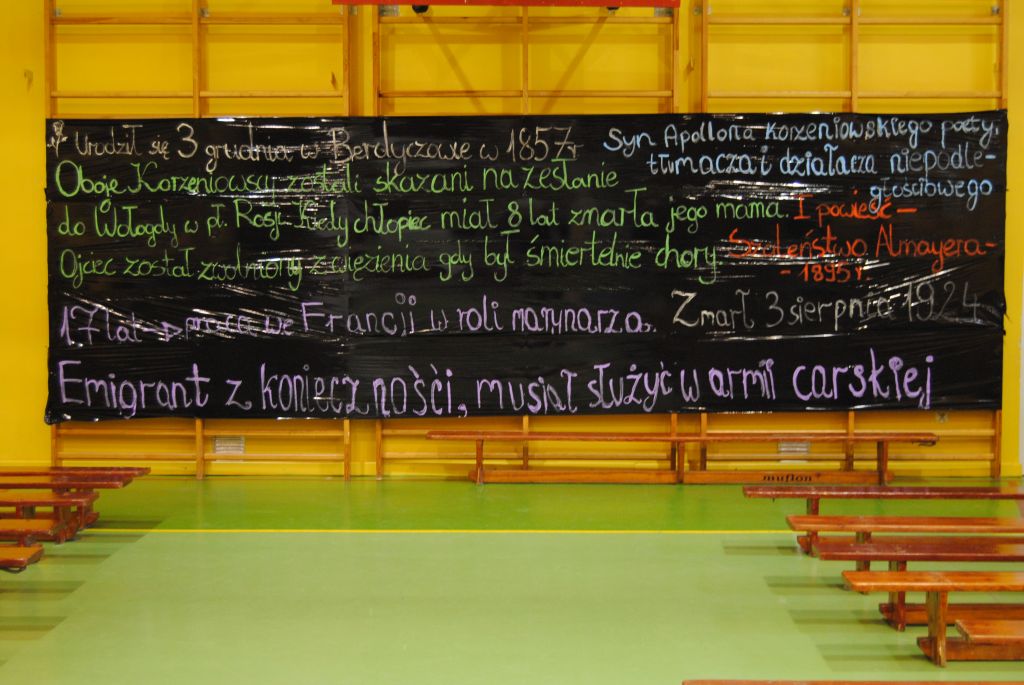 Urodził się 3 grudnia w Berdyczowie w 1857r
Syn Apollona Korzeniowskiego poety,
tłumacza i działacza niepodle-
głościowego
Oboje Korzeniowscy zostali skazani na zesłanie
do Wołogdy w pł. Rosji. Kiedy chłopiec miał 8 lat zmarła jego mama.
Ojciec został zwolniony z więzienia gdy był śmiertelnie chory
I powieść –
Szaleństwo Almayera -
- 1895 r
17 lat → praca we Francji w roli marynarza.
Zmarł 3 sierpnia 1924
Emigrant z koniecznośći, musiał służyć w armii carskiej
muflon